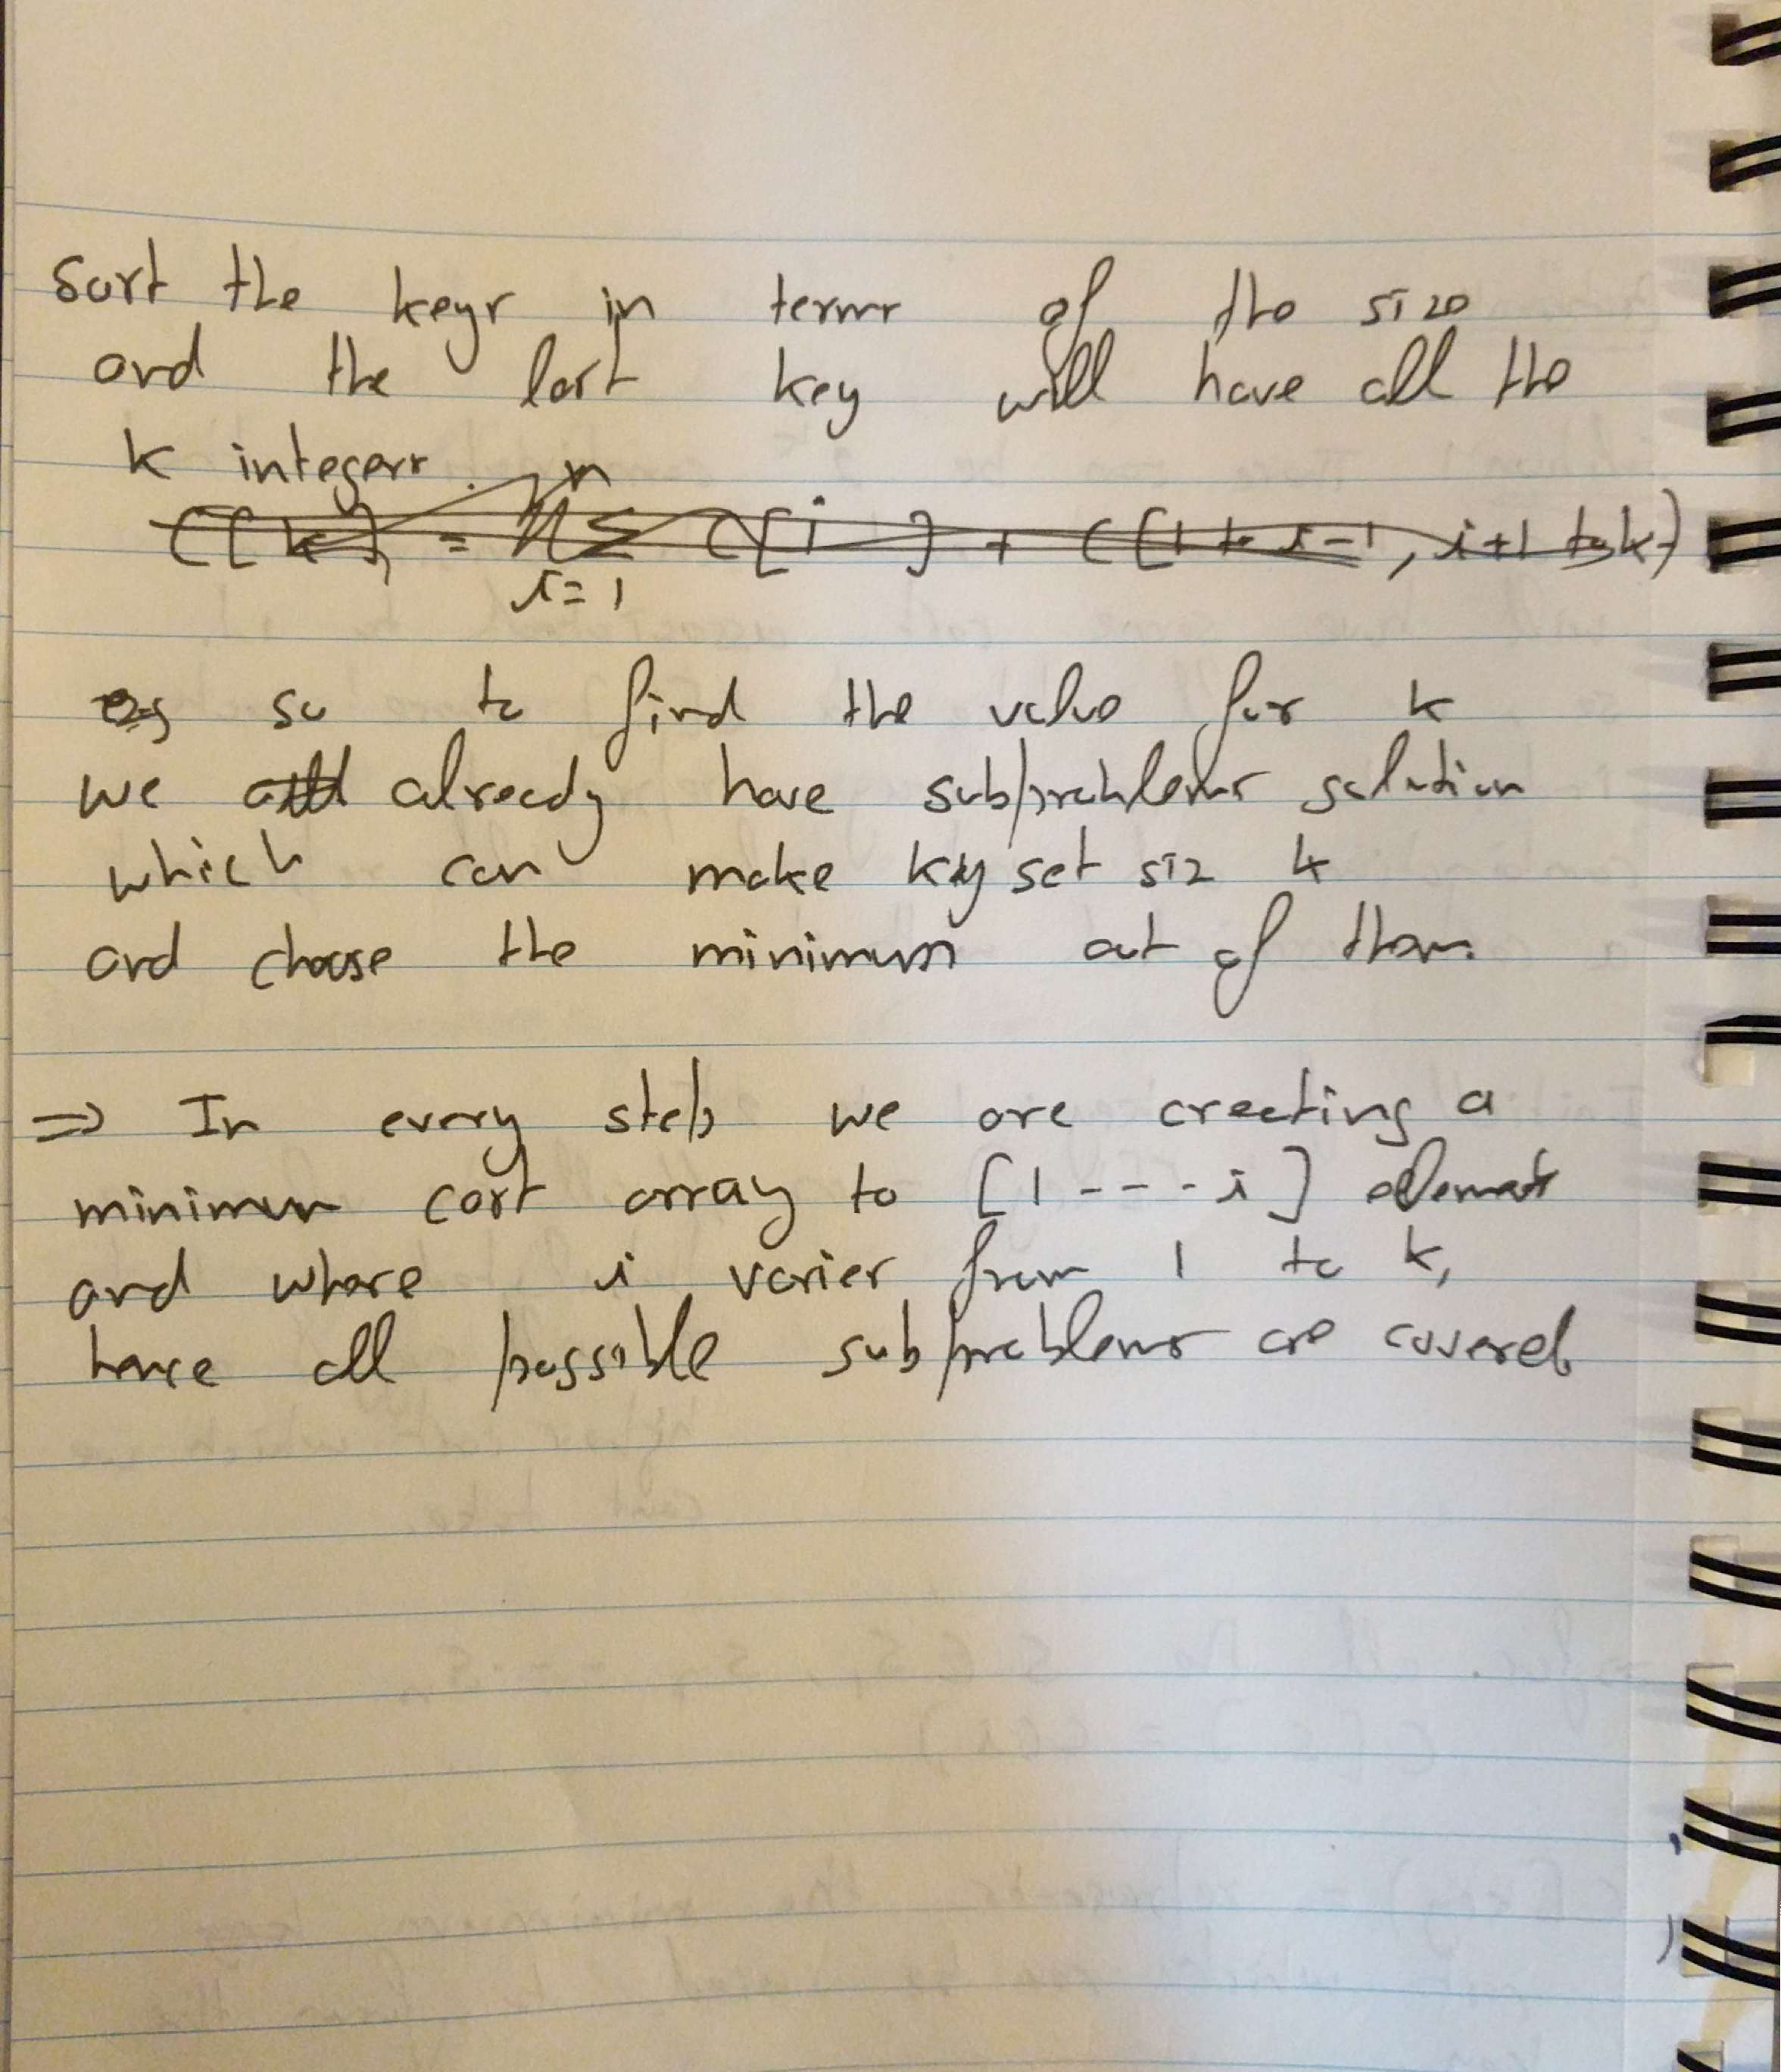 Sort the keys in terms of the size
and the last key will have all the
k integers.
C[k] = Σ C[i] + C[1 to i-1, i+1 to k]
n
i=1
so to find the value for k
we already have subproblems solution
which can make key set siz k
and choose the minimum out of them.
⇒ In every step we are creating a
minimum cost array to [1 - - - i] elements
and where i varies from 1 to k,
hence all possible subproblems are covered